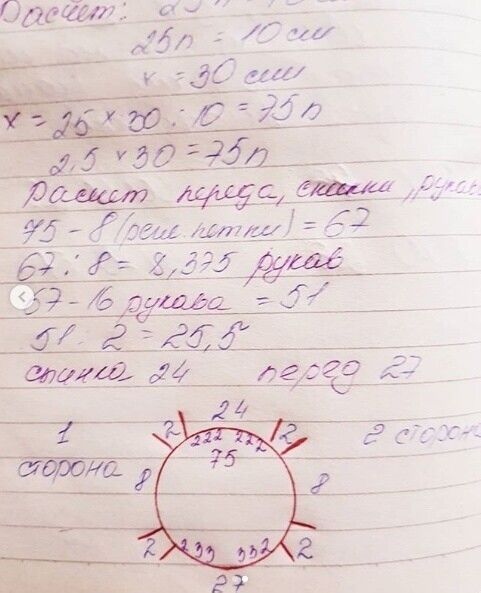 Расчет: 25п = 10 см
25п = 10 см
х = 30 см
х = 25 × 30 : 10 = 75п
2,5 × 30 = 75п
Расчет переда, спинки, рукав
75 - 8 (регл. петли) = 67
67 : 8 = 8,375 рукав
67 - 16 рукава = 51
51 : 2 = 25,5
спинка 24 перед 27
24
2 222 222 2
1 75 2 сторона
сторона 8 8
2 233 332 2
27